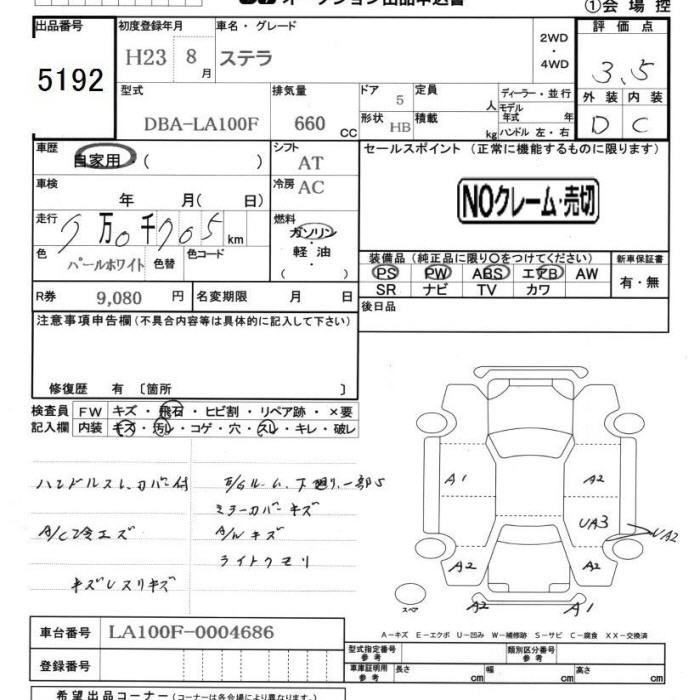 オークション出品申込書
①会場控
出品番号
5192
初度登録年月
H23 8月
車名・グレード
ステラ
2WD
・
4WD
評価点
3.5
外装 内装
D C
型式
DBA-LA100F
排気量
660 CC
ドア 5
形状 HB
定員 人
積載 kg
ディーラー・並行
モデル年式 年
ハンドル 左・右
車歴
自家用・( )
シフト
AT
車検
年 月( 日)
冷房
AC
走行
万0千705km
燃料
ガソリン・
軽油・
( )
色
パールホワイト
色替
色コード
R券
9,080 円
名変期限 月 日
セールスポイント(正常に機能するものに限ります)
NOクレーム・売切
装備品(純正品に限り○をつけてください)
PS PW ABS エアB AW
SR ナビ TV カワ
新車保証書
有・無
後日品
注意事項申告欄(不具合内容等は具体的に記入して下さい)
修復歴 有〔箇所 〕
検査員
記入欄
FW キズ・飛石・ヒビ割・リペア跡・×要
内装 キズ・汚レ・コゲ・穴・スレ・キレ・破レ
ハンドルスレ、カバー付
E/Gルーム、下廻り、一部S
ミラーカバーキズ
A/C冷エズ
A/Wキズ
ライトクモリ
キズレスリキズ
A1
A2
UA3
UA2
A2
A2
A2
A1
スペア
A-キズ E-エクボ U-凹み W-補修跡 S-サビ C-腐食 XX-交換済
車台番号
LA100F-0004686
登録番号
型式指定番号
参考
類別区分番号
参考
車庫証明用
参考
長さ cm
幅 cm
高さ cm
希望出品コーナー(コーナーは各会場により異なります)